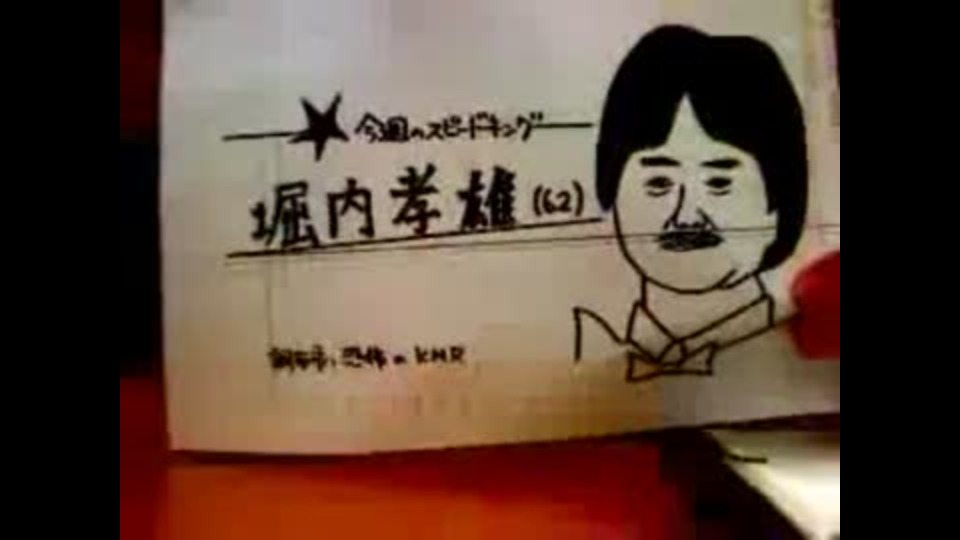 ★今週のスピードキング
堀内孝雄(62)
恐怖のKMR